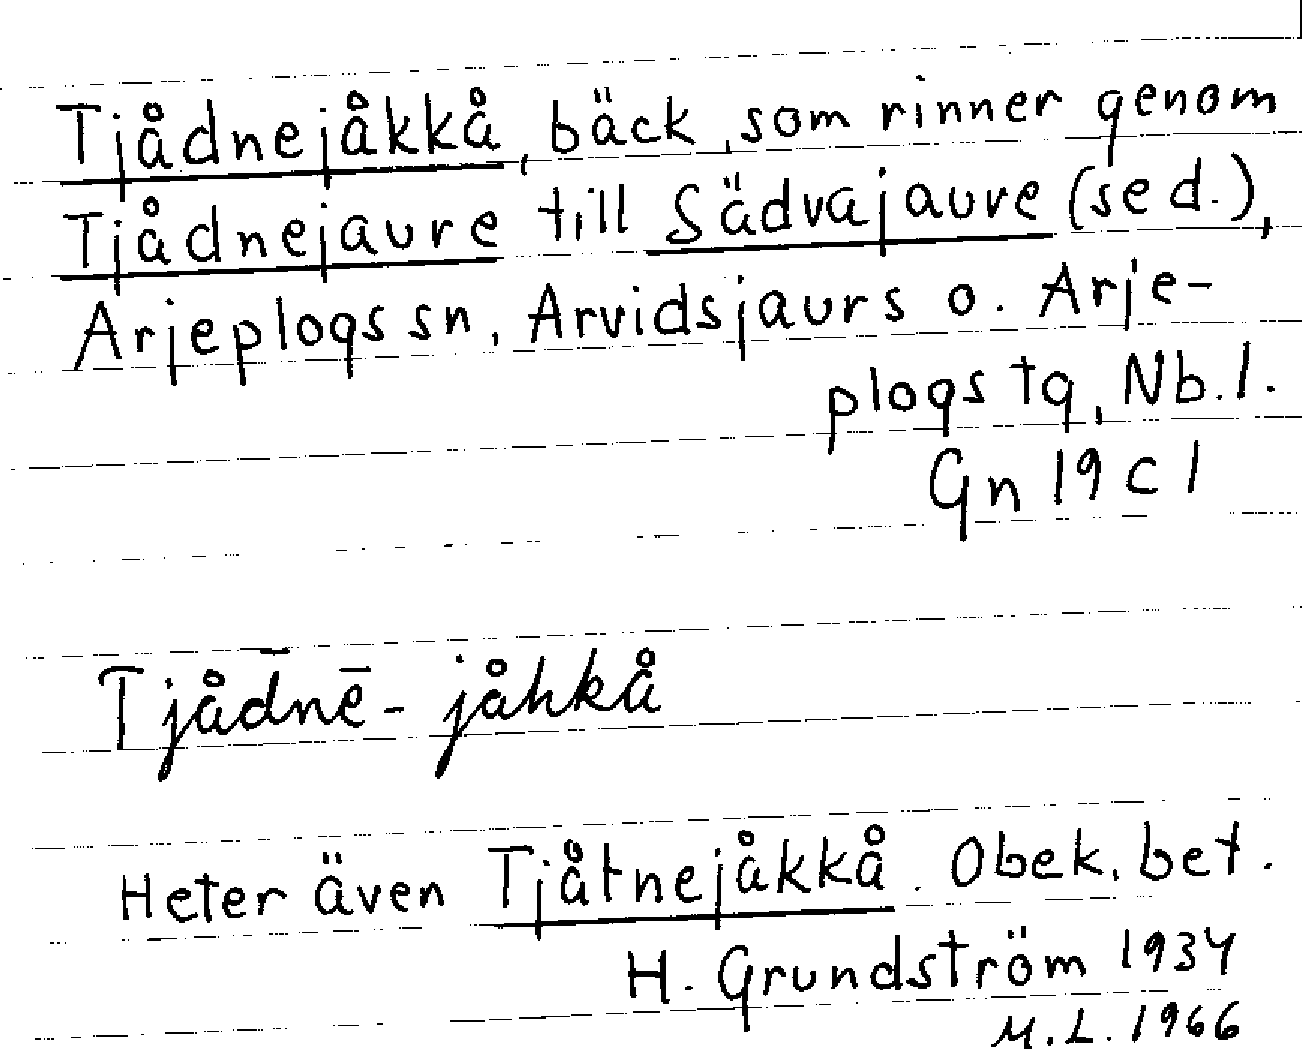 Tjådnejåkkå, bäck, som rinner genom
Tjådnejaure till Sädvajaure (sed.),
Arjeplogs sn, Arvidsjaurs o. Arje-
plogs tg, Nb. l.
Gn 19 c 1
Tjåd̄nē-jåhkå
Heter även Tjåtnejåkkå. Obek. bet.
H. Grundström 1934
M.L. 1966